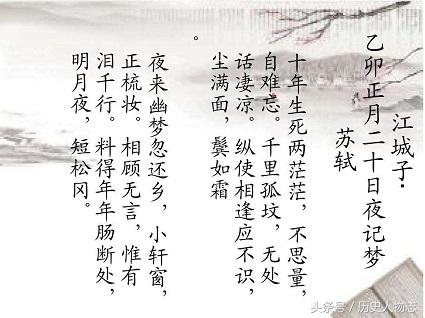 江城子·
乙卯正月二十日夜记梦
苏轼
十年生死两茫茫，不思量，
自难忘。千里孤坟，无处
话凄凉。纵使相逢应不识，
尘满面，鬓如霜
。
夜来幽梦忽还乡，小轩窗，
正梳妆。相顾无言，惟有
泪千行。料得年年肠断处，
明月夜，短松冈。
头条号/历史人物志